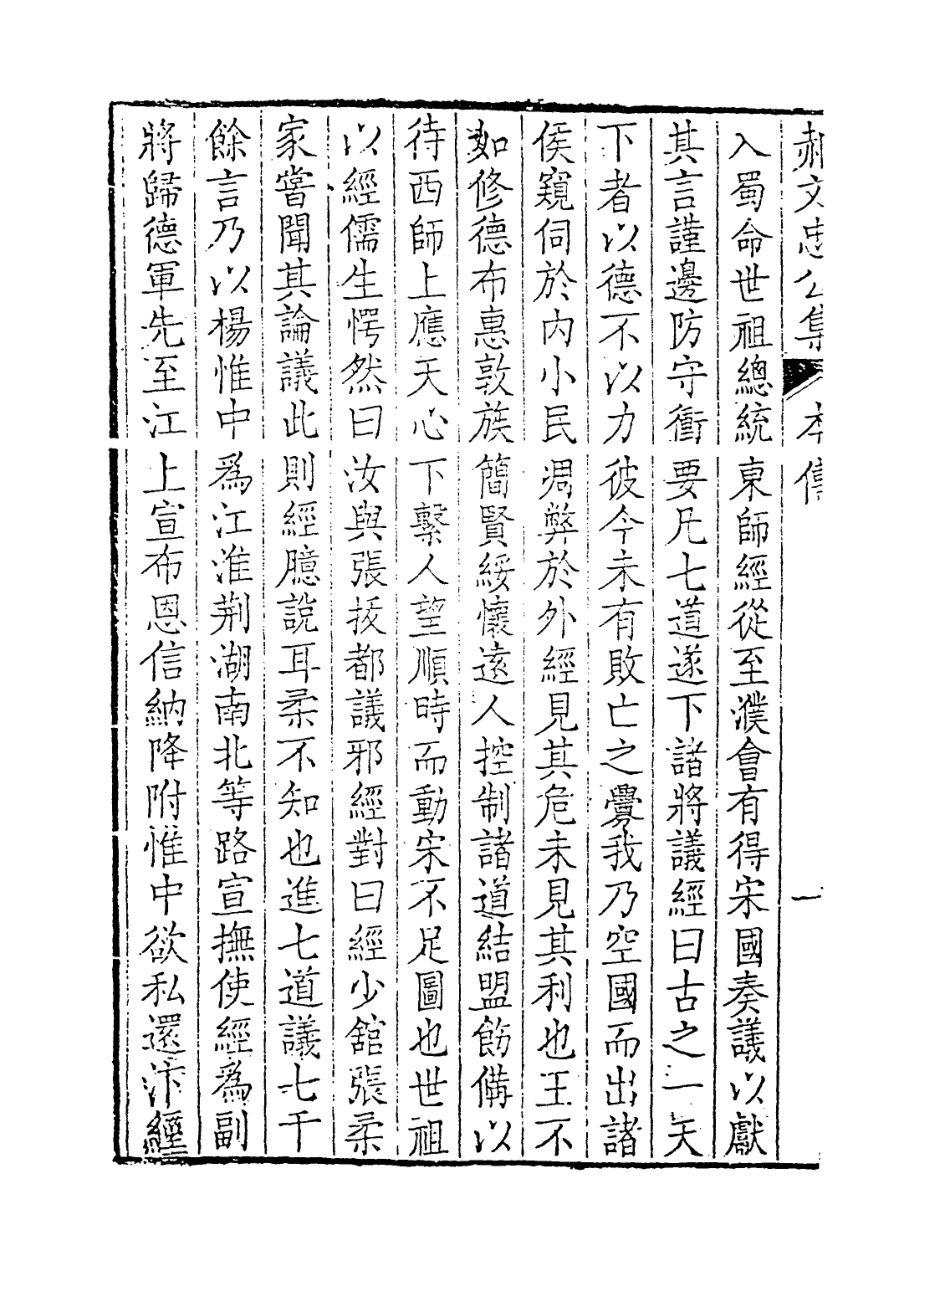 郝文忠公集 本傳 一
入蜀命世祖總統東師經從至濮會有得宋國奏議以獻
其言謹邊防守衝要凡七道遂下諸將議經曰古之一天
下者以德不以力彼今未有敗亡之釁我乃空國而出諸
侯窺伺於內小民凋弊於外經見其危未見其利也王不
如修德布惠敦族簡賢綏懷遠人控制諸道結盟飭備以
待西師上應天心下繫人望順時而動宋不足圖也世祖
以經儒生愕然曰汝與張拔都議邪經對曰經少舘張柔
家嘗聞其論議此則經臆說耳柔不知也進七道議七千
餘言乃以楊惟中爲江淮荆湖南北等路宣撫使經爲副
將歸德軍先至江上宣布恩信納降附惟中欲私還汴經